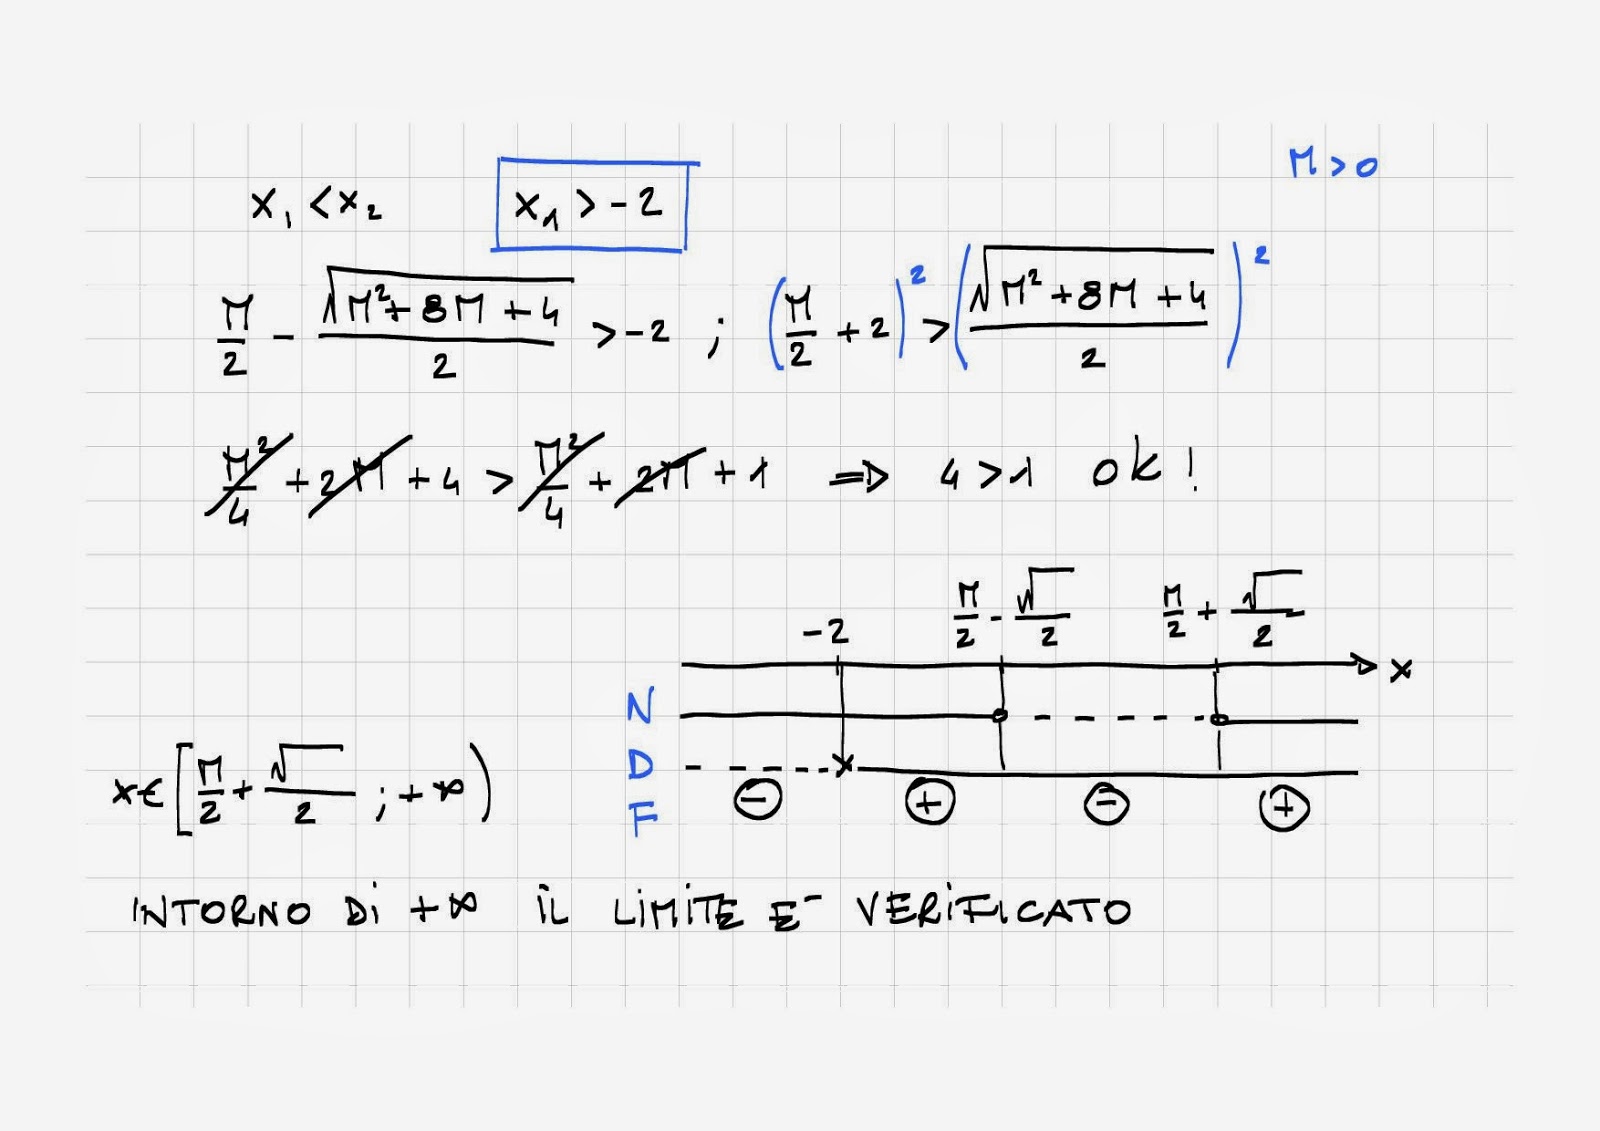 M > 0
x₁ < x₂ x₁ > -2
M/2 - √(M²+8M+4)/2 > -2 ; (M/2 + 2)² > (√(M²+8M+4)/2)²
M²/4 + 2M + 4 > M²/4 + 2M + 1 ⇒ 4 > 1 ok!
-2 M/2 - √/2 M/2 + √/2
x
N
D
x ∈ [M/2 + √/2 ; +∞)
F - + - +
INTORNO Di +∞ iL LiMiTE E- VERiFiCATO